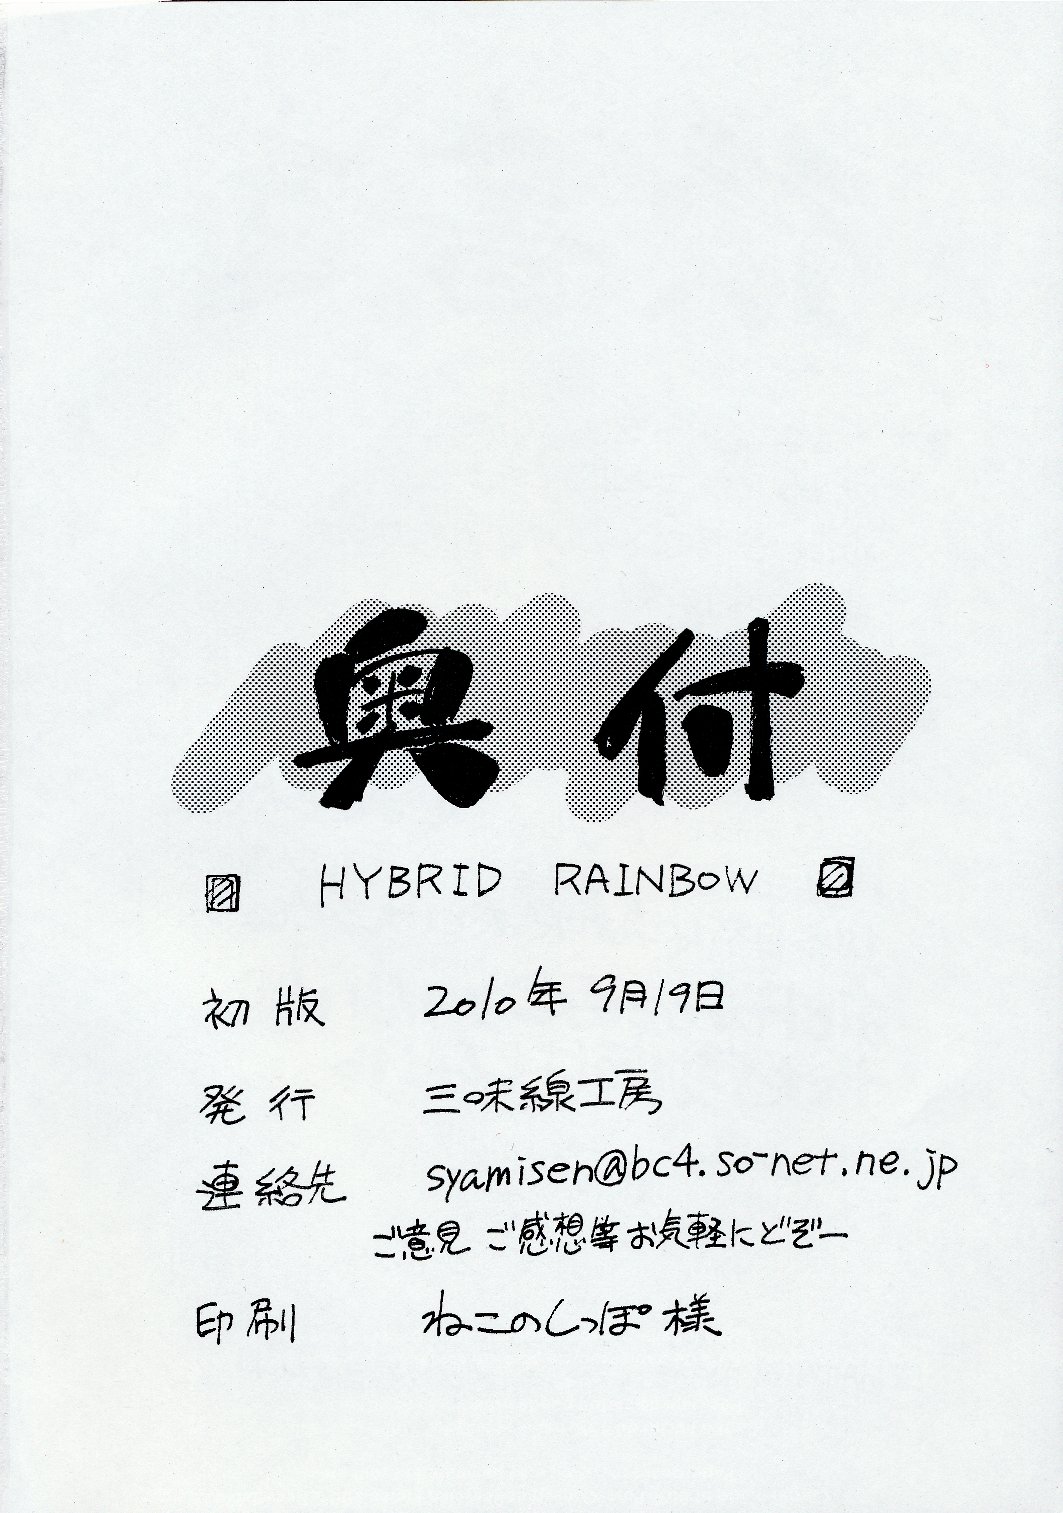 奥付
HYBRID RAINBOW
初版 2010年 9月19日
発行 三味線工房
連絡先 syamisen@bc4.so-net.ne.jp
ご意見 ご感想等お気軽にどぞー
印刷 ねこのしっぽ様